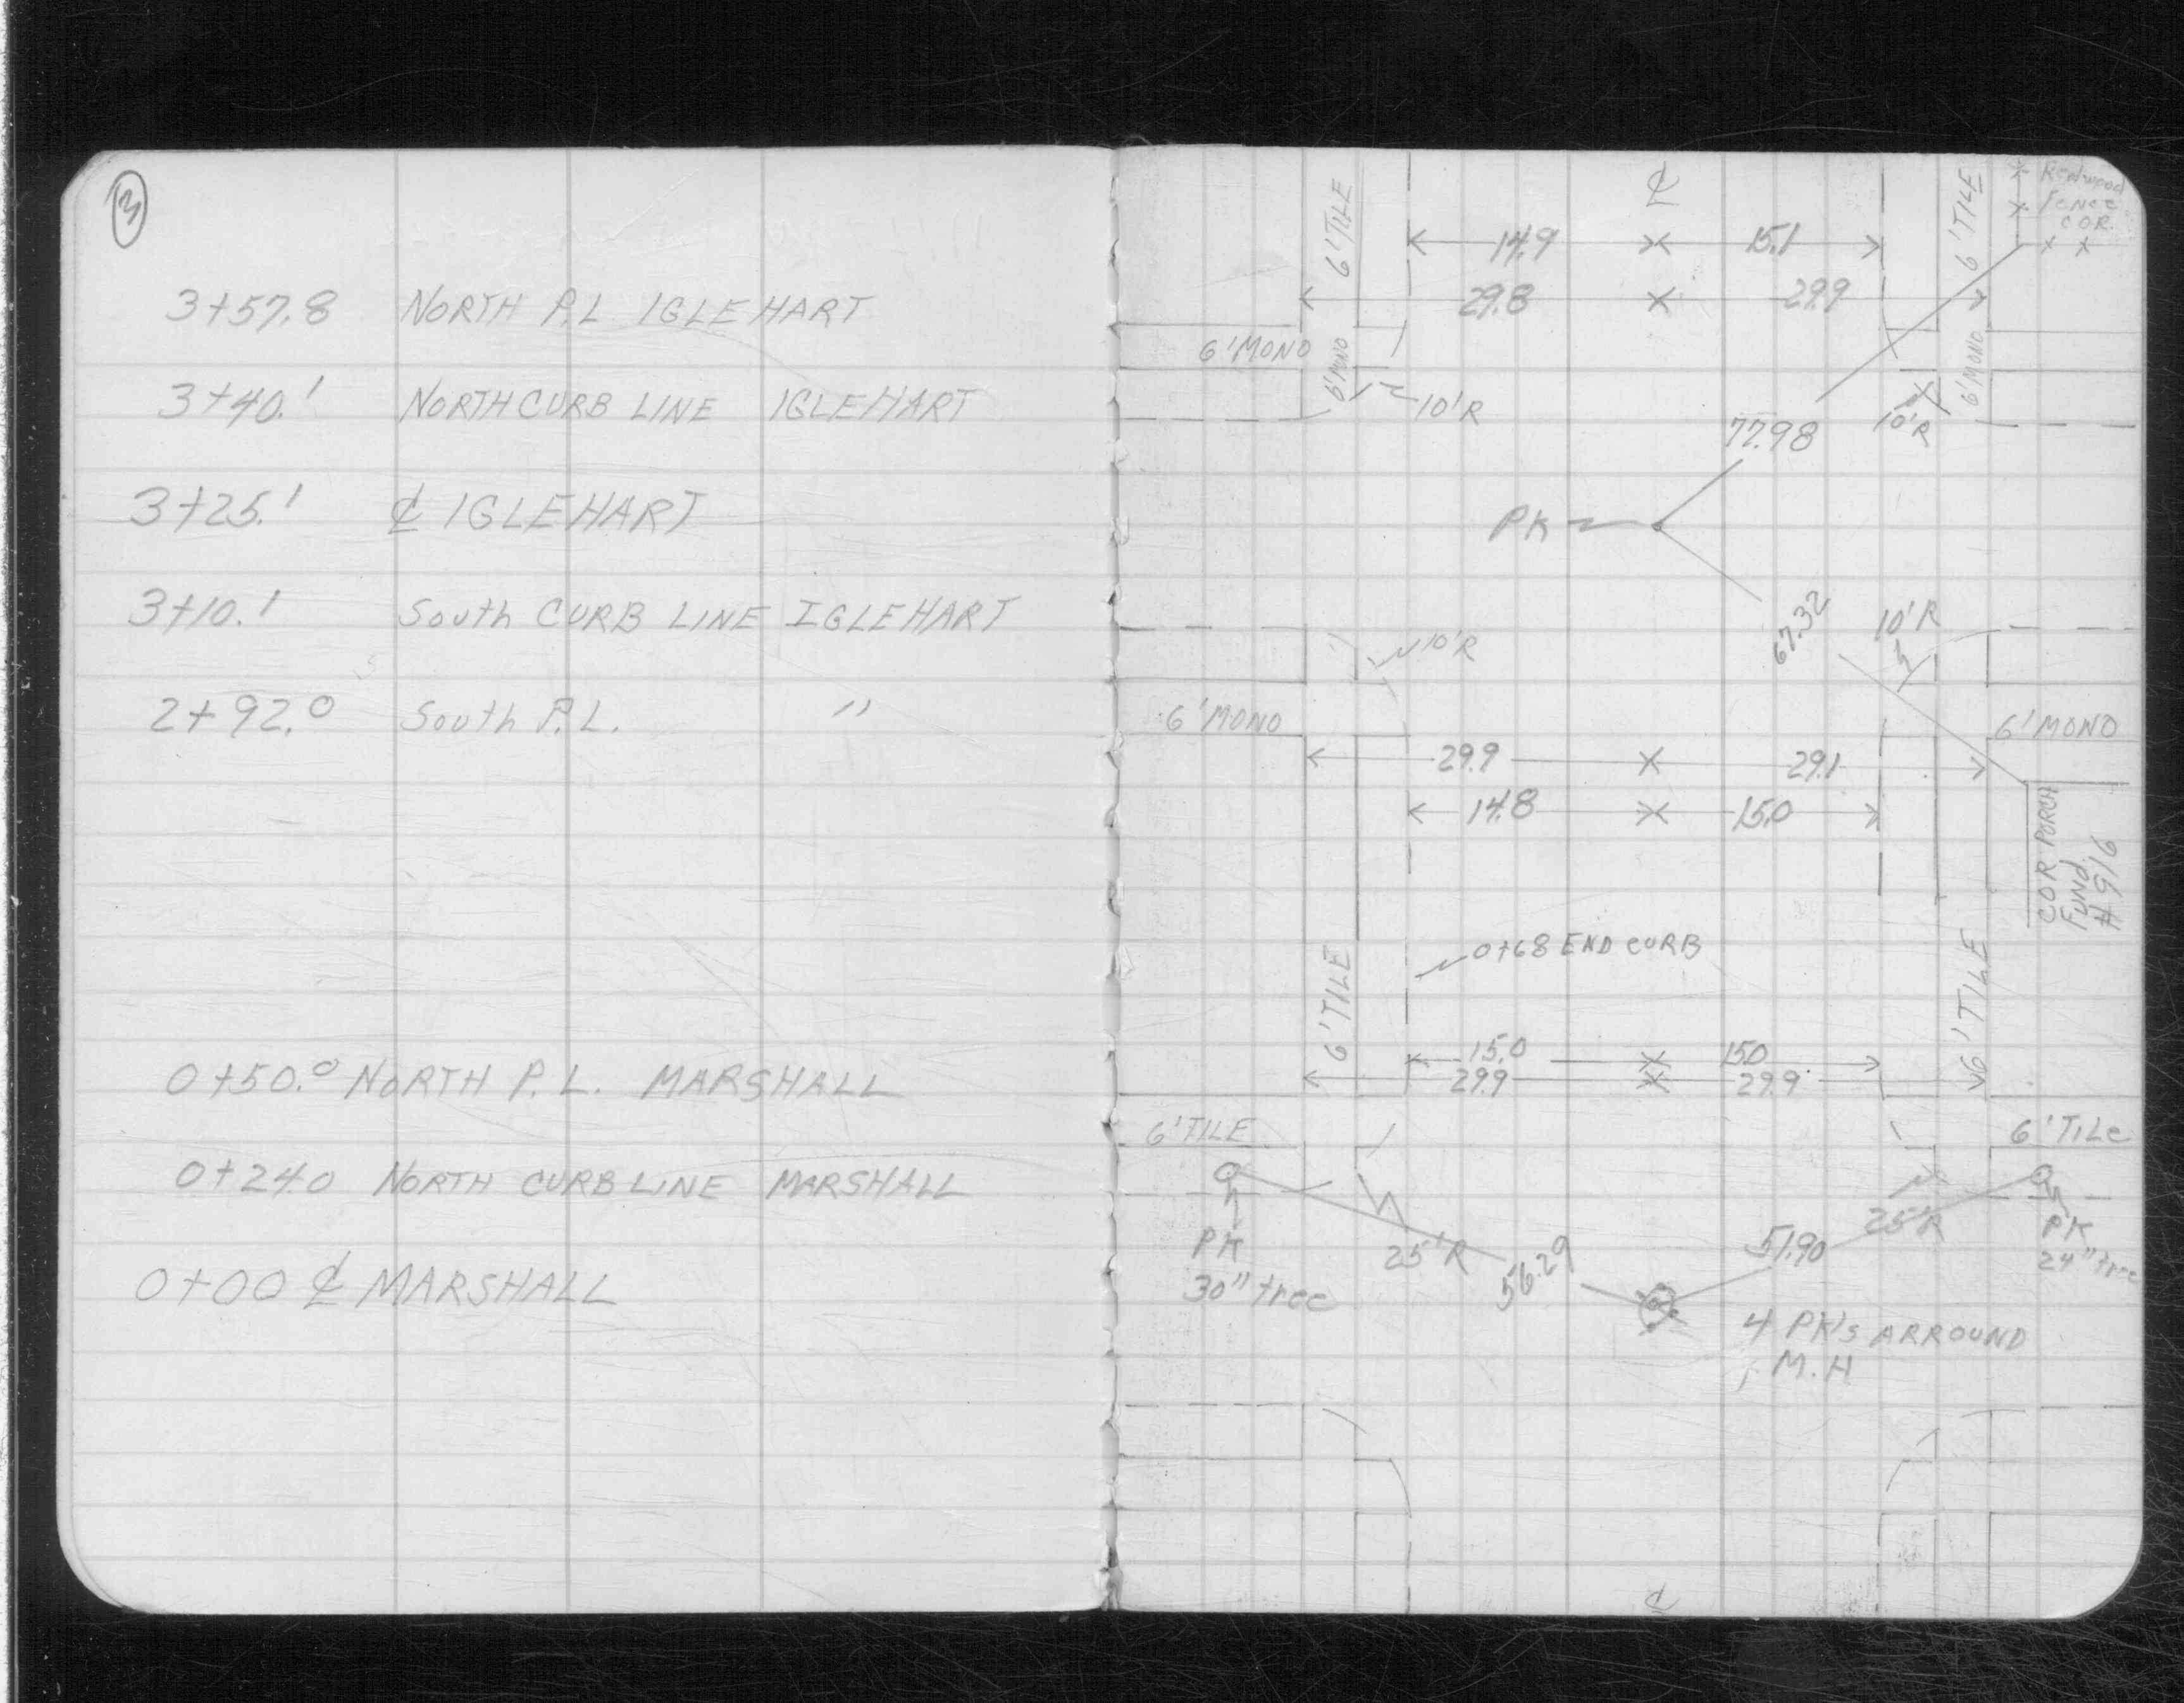 3
3+57.8 NORTH P.L IGLEHART
3+40.1 NORTH CURB LINE IGLEHART
3+25.1 ℄ IGLEHART
3+10.1 South CURB LINE IGLEHART
2+92.0 South P.L. "
0+50.0 NORTH P.L. MARSHALL
0+24.0 NORTH CURB LINE MARSHALL
0+00 ℄ MARSHALL
℄
6' TILE
6' TILE
Redwood
Fence
COR.
14.9 15.1
29.8 29.9
6' MONO
6' MONO
6' MONO
10'R
10'R
77.98
PK
67.32
10'R
10'R
6' MONO
6' MONO
29.9 29.1
14.8 15.0
COR PORCH
FUND.
#916
0+68 END CURB
6' TILE
6' TILE
15.0 150
29.9 29.9
6' TILE
6' TILE
PK
30" tree
25'R
56.29
51.90
25'R
PK
24" tree
4 PK's ARROUND
M.H
℄